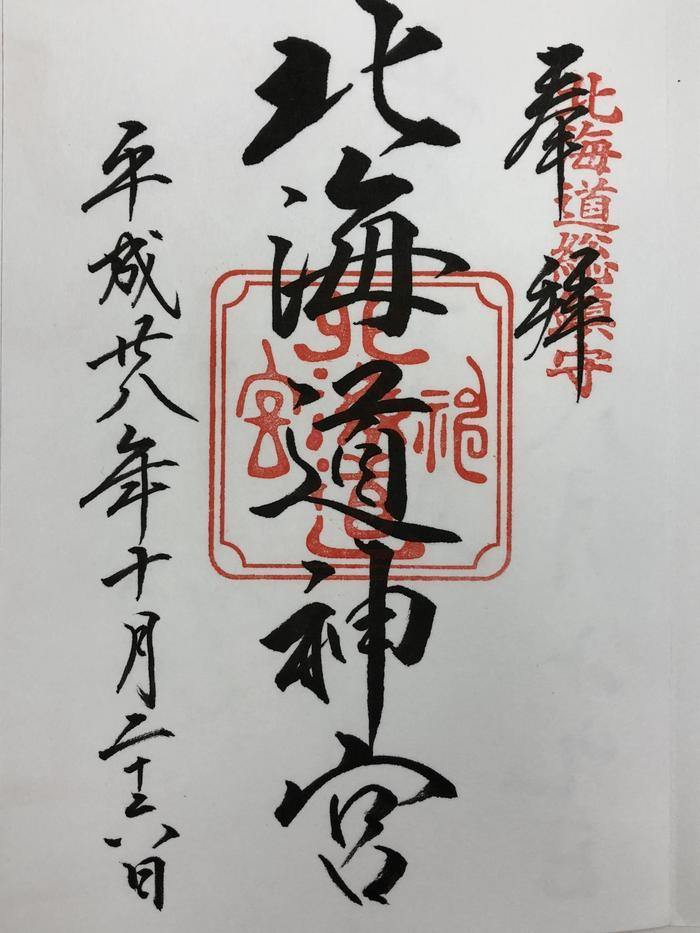 奉拝
北海道総鎮守
北海道神宮
北海道神宮
平成廿八年十月二十六日